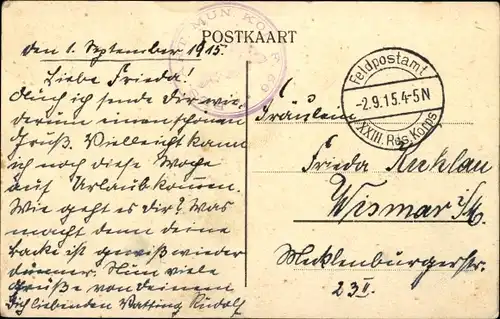 POSTKAART
MUN. KOL
den 1. September 1915.
Liebe Frieda!
Auch ich sende dir wie-
derum einen schönen
Gruß. Vielleicht kann
ich noch diese Woche
auf Urlaub kommen.
Wie geht es dir? Was
macht denn deine
Backe ist gewiß wieder
dünner. Nun viele
Grüße von deinem
dich liebenden Rudolf
Feldpostamt
-2.9.15.4-5N
XXIII. Res. Korps
Fräulein
Frieda
Wismar i/M.
Mecklenburgerstr.
23II.